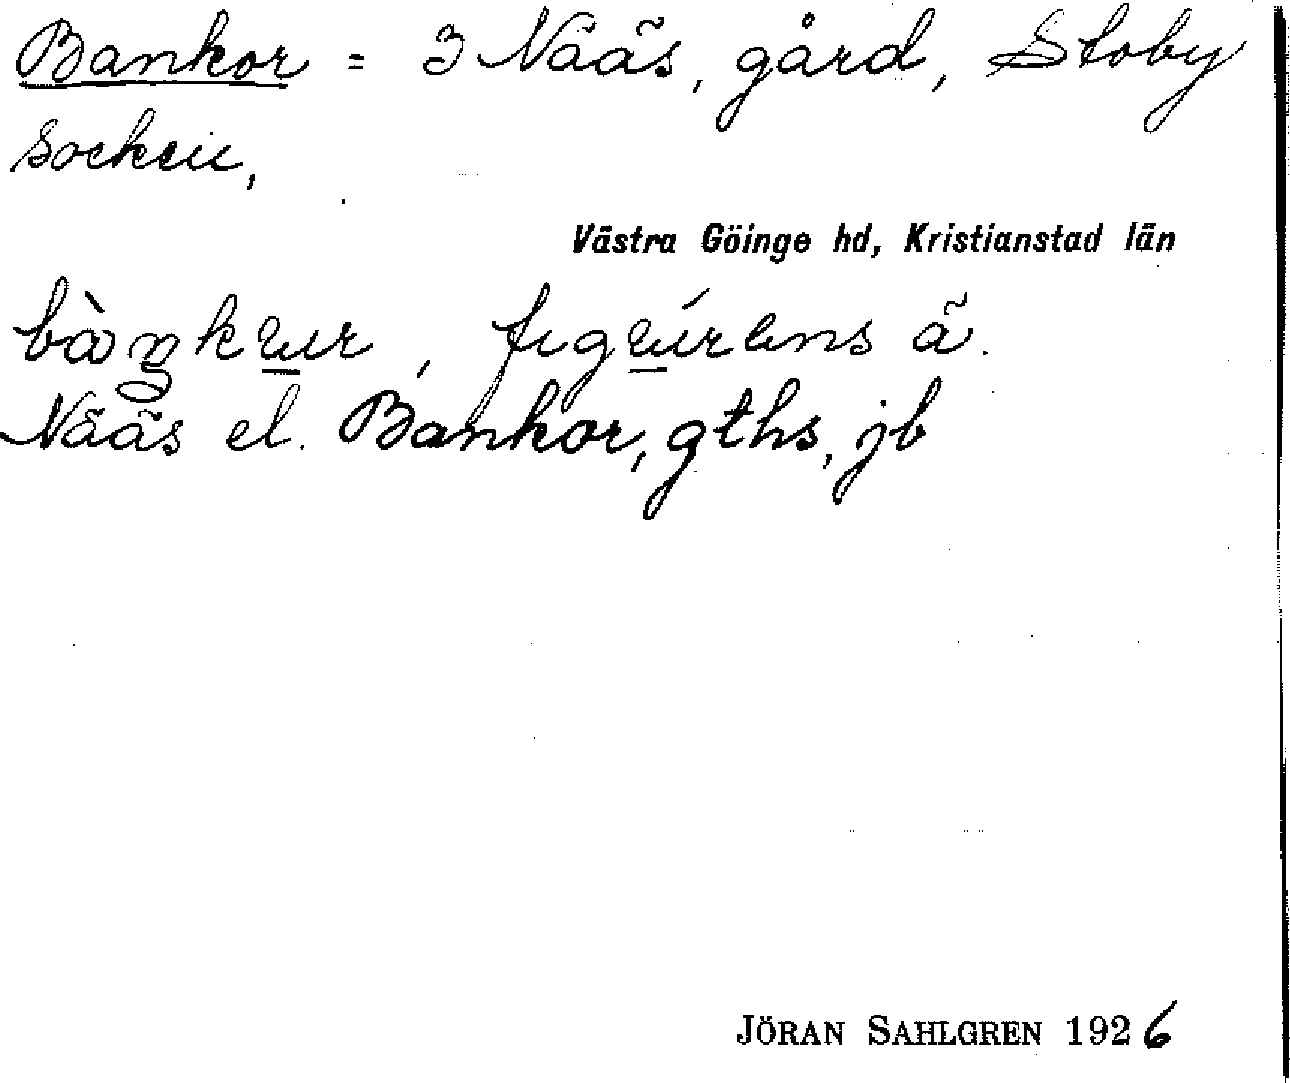 Bankor = 3 Nääs, gård, Stoby
socken,
Västra Göinge hd, Kristianstad län
Nääs el. Bankor, gths, jb
JÖRAN SAHLGREN 1926